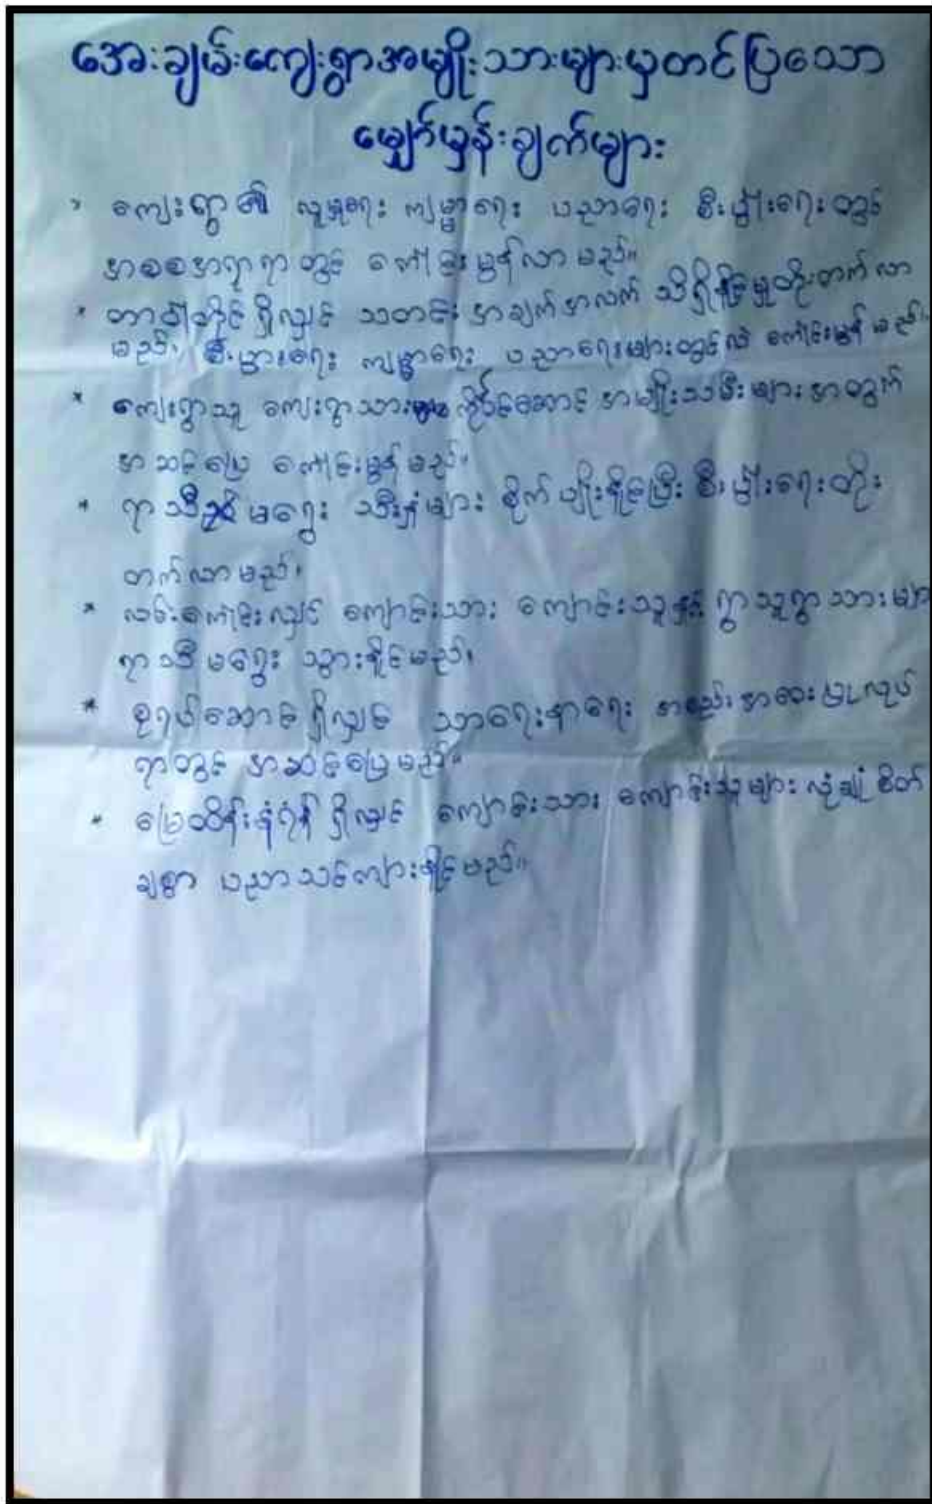 အေးချမ်းကျေးရွာအမျိုးသားများမှတင်ပြသော
မျှော်မှန်းချက်များ
* ကျေးရွာ၏ လူမှုရေး ကျမ္မာရေး ပညာရေး စီးပွါးရေးတွင်
အစစအရာရာတွင် ကောင်းမွန်လာမည်။
* တာဝါတိုင်ရှိလျှင် သတင်းအချက်အလက် သိရှိနိုင်မှုတိုးတက်လာ
မည်၊ စီးပွားရေး ကျမ္မာရေး ပညာရေးများတွင်လဲ ကောင်းမွန်မည်။
* ကျေးရွာသူ ကျေးရွာသားများ ကိုဝင်ဆောင် အမျိုးသမီးများအတွက်
အဆင်ပြေ ကောင်းမွန်မည်။
* ရာသီဥတုမရွေး သီးနှံများ စိုက်ပျိုးနိုင်ပြီး စီးပွါးရေးတိုး
တက်လာမည်၊
* လမ်းကောင်းလျှင် ကျောင်းသား ကျောင်းသူနှင့် ရွာသူရွာသားများ
ရာသီမရွေး သွားနိုင်မည်၊
* စုရပ်ဆောင်ရှိလျှင် သာရေးနာရေး အစည်းအဝေးပြုလုပ်
ရာတွင် အဆင်ပြေမည်။
* မြေထိန်းနံရံရှိလျှင် ကျောင်းသား ကျောင်းသူများ လုံချုံစိတ်
ချစွာ ပညာသင်ကျားနိုင်မည်။